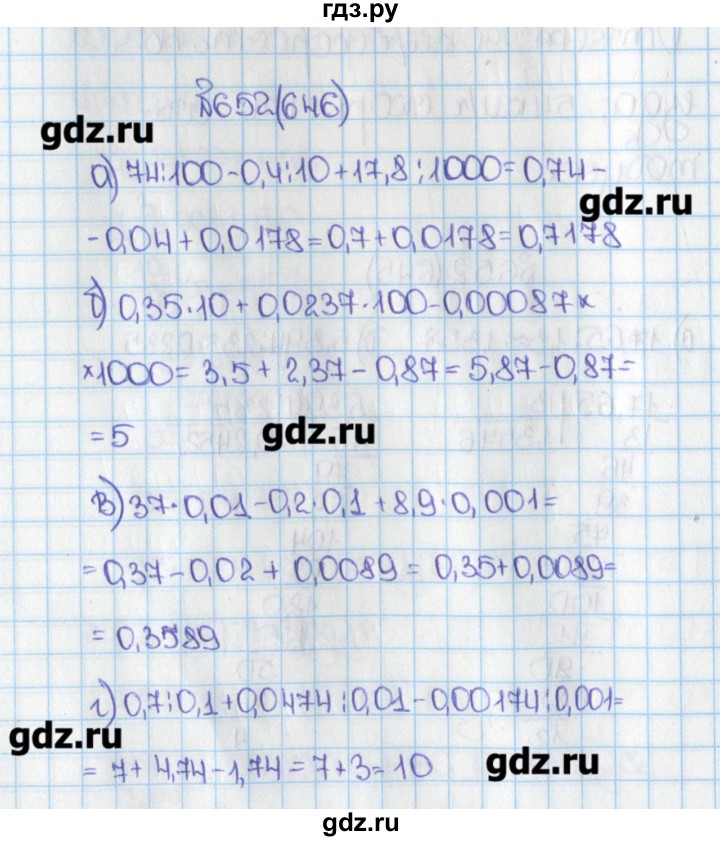 гдз.ру
№652(646)
gdz.ru
а) 74:100-0,4:10+17,8:1000=0,74-
gdz.ru
-0,04+0,0178=0,7+0,0178=0,7178
б) 0,35·10+0,0237·100-0,00087×
×1000=3,5+2,37-0,87=5,87-0,87=
=5
gdz.ru
в) 37·0,01-0,2·0,1+8,9·0,001=
=0,37-0,02+0,0089=0,35+0,0089=
=0,3589
г) 0,7:0,1+0,0474:0,01-0,00174:0,001=
gdz.ru
=7+4,74-1,74=7+3=10
gdz.ru
gdz.ru